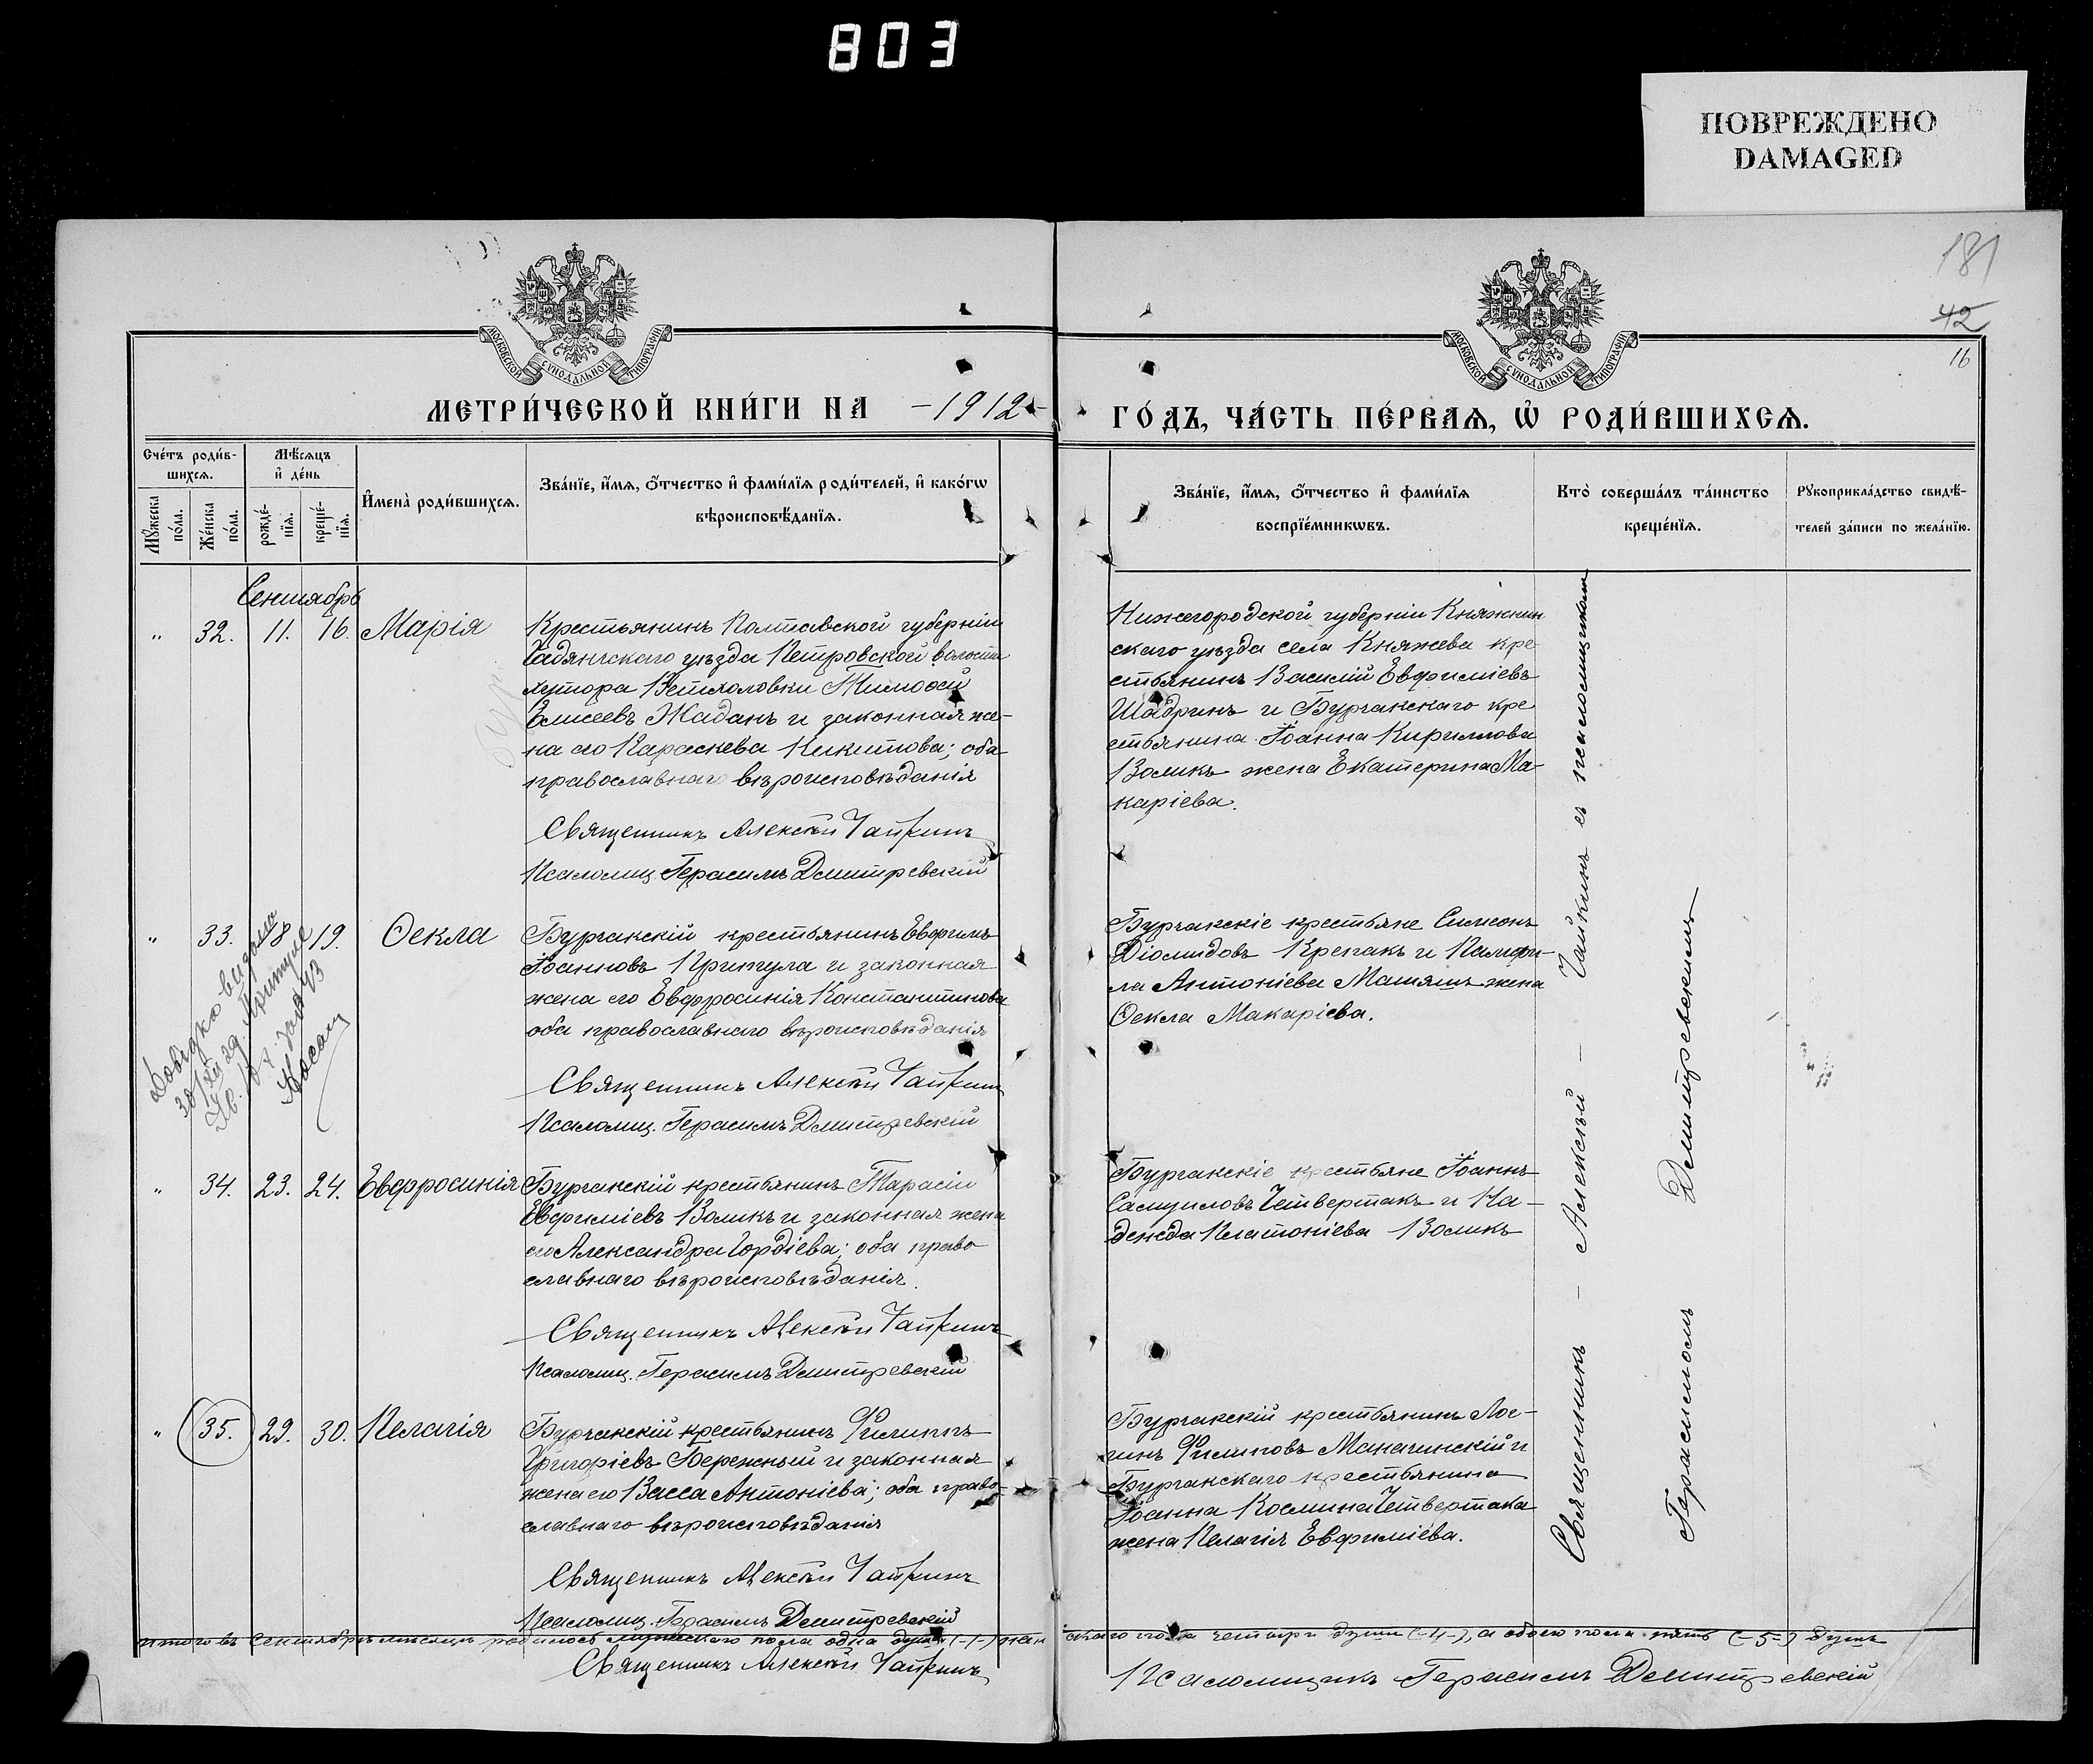 803
ПОВРЕЖДЕНО
DAMAGED
181
42
16
МОСКОВСКОЙ СѴНОДАЛЬНОЙ ТИПОГРАФІИ
МОСКОВСКОЙ СѴНОДАЛЬНОЙ ТИПОГРАФІИ
МЕТРИ́ЧЕСКОЙ КНИ́ГИ НА -1912- ГО́ДЪ, ЧА́СТЬ ПЕ́РВАѦ, Ѡ҆ РОДИ́ВШИХСѦ.
Сче́тъ роди́в-
шихсѧ.
Мꙋ́жеска по́ла.
Же́нска по́ла.
Мѣ́сѧцъ
и҆ де́нь
рожде́-
нїѧ.
креще́-
нїѧ.
И҆мена̀ роди́вшихсѧ.
Зва́нїе, и҆́мѧ, ѻ҆́тчество и҆ фами́лїѧ роди́телей, и҆ како́гѡ
вѣроисповѣ́данїѧ.
Зва́нїе, и҆́мѧ, ѻ҆́тчество и҆ фами́лїѧ
воспрїе́мникѡвъ.
Кто̀ соверша́лъ та́инство
креще́нїѧ.
Рꙋкоприкла́дство свидѣ́-
телей за́писи по жела́нїю.
Сентябрь
" 32. 11. 16. Марія
Крестьянинъ Полтавской губерніи
Гадячскаго уѣзда Петровской волости
хутора Ветхоловки Тимофей
Елисеевъ Жаданъ и законная же-
на его Параскева Никитова; оба
православнаго вѣроисповѣданія
Священникъ Алексѣй Чайкинъ
Псаломщ. Герасимъ Дмитревскій
Нижегородской губерніи Княжнин
скаго уѣзда села Княжева кре
стьянинъ Василій Евфиміевъ
Шадринъ и Бурчакскаго кре
стьянина Іоанна Кириллова
Воликъ жена Екатерина Ма-
каріева.
" 33. 18 19. Ѳекла
Бурчакскій крестьянинъ Евфимъ
Іоанновъ Притула и законная
жена его Евфросинія Константинова
оба православнаго вѣроисповѣданія
Священникъ Алексѣй Чайкинъ
Псаломщ. Герасимъ Дмитревскій
Бурчакскіе крестьяне Симеонъ
Діомидовъ Крепакъ и Памфи-
ла Антоніева Матяшъ жена
Ѳекла Макаріева.
Довідку видана
30/XII 29 Притуле
" 34. 23. 24. Евфросинія
Бурчакскій крестьянинъ Тарасій
Евфиміевъ Воликъ и законная жена
его Александра Гордіева; оба право
славнаго вѣроисповѣданія.
Священникъ Алексѣй Чайкинъ
Псаломщ. Герасимъ Дмитревскій
Бурчакскіе крестьяне Іоаннъ
Самуиловъ Четвертакъ и На-
дежда Платоніева Воликъ
" 35. 29. 30. Пелагія
Бурчакскій крестьянинъ Филиппъ
Григоріевъ Бережный и законная
жена его Васса Антоніева; оба право-
славнаго вѣроисповѣданія
Священникъ Алексѣй Чайкинъ
Псаломщ. Герасимъ Дмитревскій
Бурчакскій крестьянинъ Лог-
гинъ Филиповъ Маначинскій и
Бурчакскаго крестьянина
Іоанна Космина Четвертака
жена Пелагія Евфиміева.
Священникъ – Алексѣй – Чайкинъ съ псаломщикомъ
Герасимомъ Дмитревскимъ
Итого въ Сентябрѣ мѣсяцѣ родилось мужескаго пола одна душа (-1-) жен
скаго пола четыре души (-4-), а обоего пола пять (-5-) душъ
Священникъ Алексѣй Чайкинъ
Псаломщикъ Герасимъ Дмитревскій